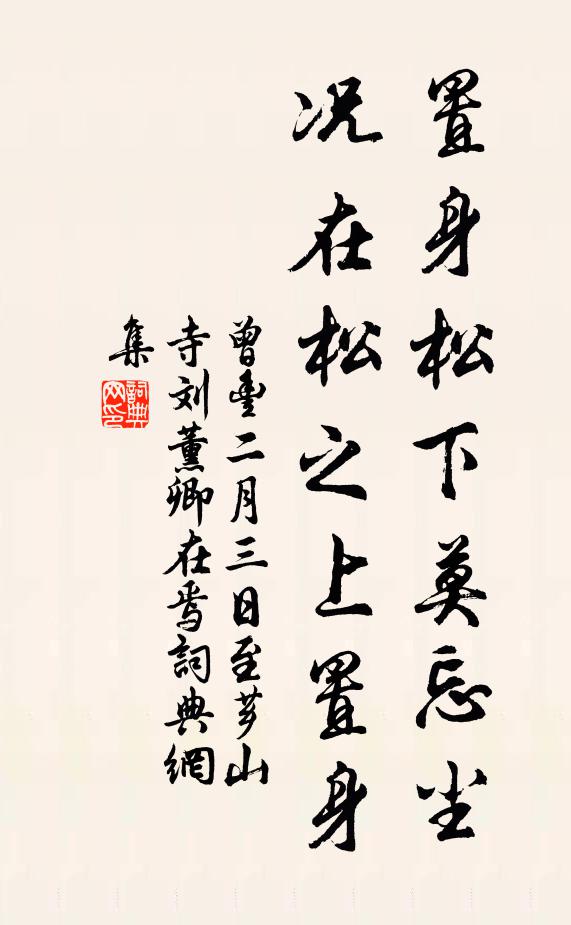 置身松下莫忘尘
况在松之上置身
曾豊二月三日至芗山
寺刘薰卿在焉詞典網
集
詞典网印